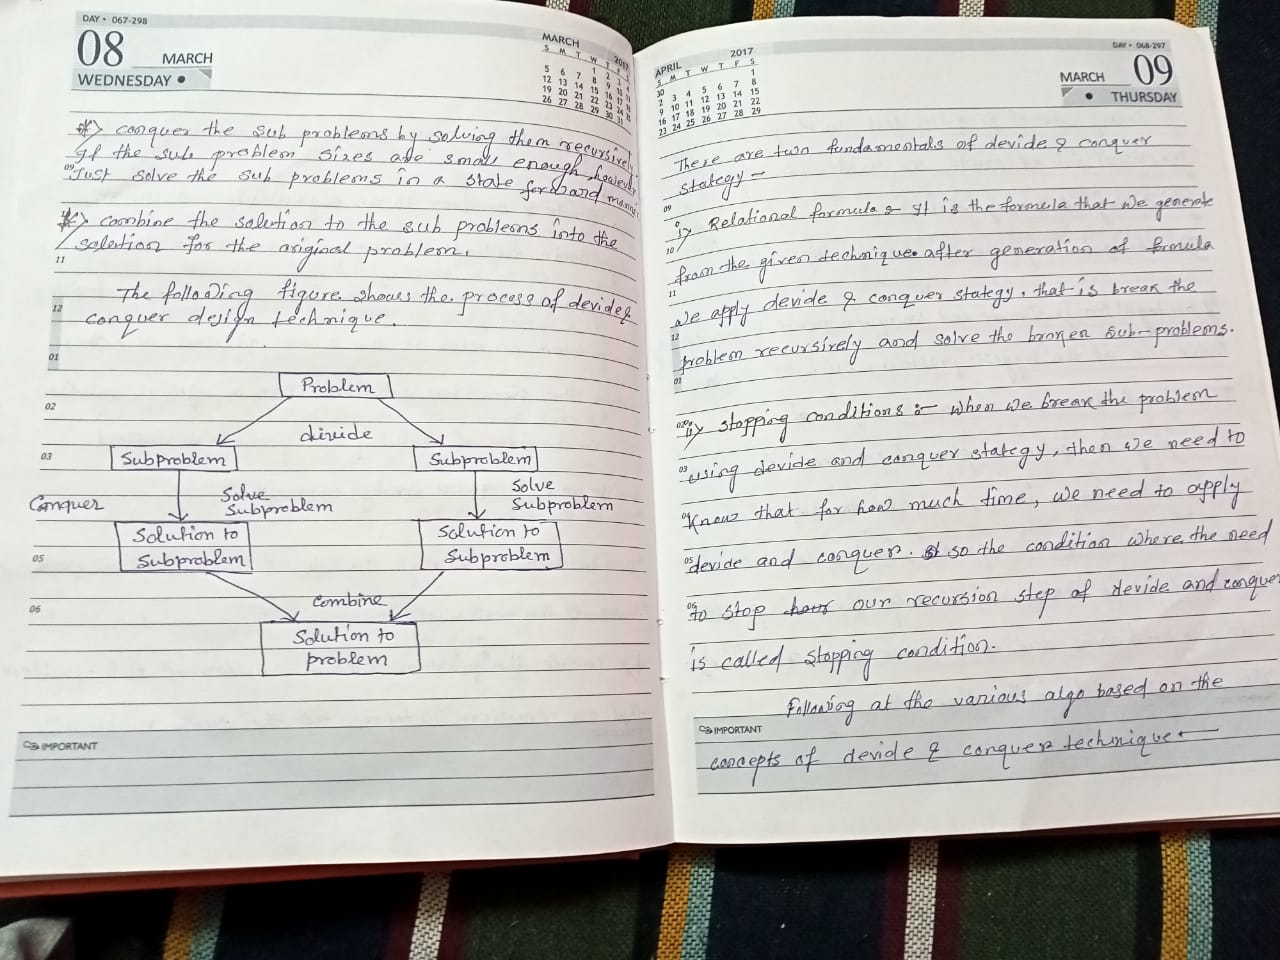 DAY • 067-298
08 MARCH
WEDNESDAY
MARCH 2017
S M T W T F S
1 2 3 4
5 6 7 8 9 10 11
12 13 14 15 16 17 18
19 20 21 22 23 24 25
26 27 28 29 30 31
*> conquer the sub problems by solving them recursively
If the sub problem sizes are small enough, however
09 Just solve the sub problems in a state forward
*> combine the solution to the sub problems into the
solution for the original problem.
11
The following figure shows the process of devide &
12
conquer design technique.
01
Problem
02
divide
03 Subproblem Subproblem
Conquer Solve Subproblem Solve Subproblem
Solution to Subproblem Solution to Subproblem
05
06 combine
Solution to
problem
IMPORTANT
APRIL 2017
S M T W T F S
30 1
2 3 4 5 6 7 8
9 10 11 12 13 14 15
16 17 18 19 20 21 22
23 24 25 26 27 28 29
DAY • 068-297
MARCH 09
THURSDAY
There are two fundamentals of devide & conquer
stategy -
09
i> Relational formula :- It is the formula that we generate
10
from the given technique. after generation of formula
11
we apply devide & conquer stategy. that is break the
12
problem recursively and solve the broken sub-problems.
01
ii> stopping conditions :- When we break the problem
03
using devide and conquer stategy, then we need to
know that for how much time, we need to apply
05 devide and conquer. so the condition where the need
06 to stop our recursion step of devide and conquer
is called stopping condition.
Following at the various algo based on the
IMPORTANT
concepts of devide & conquer technique -